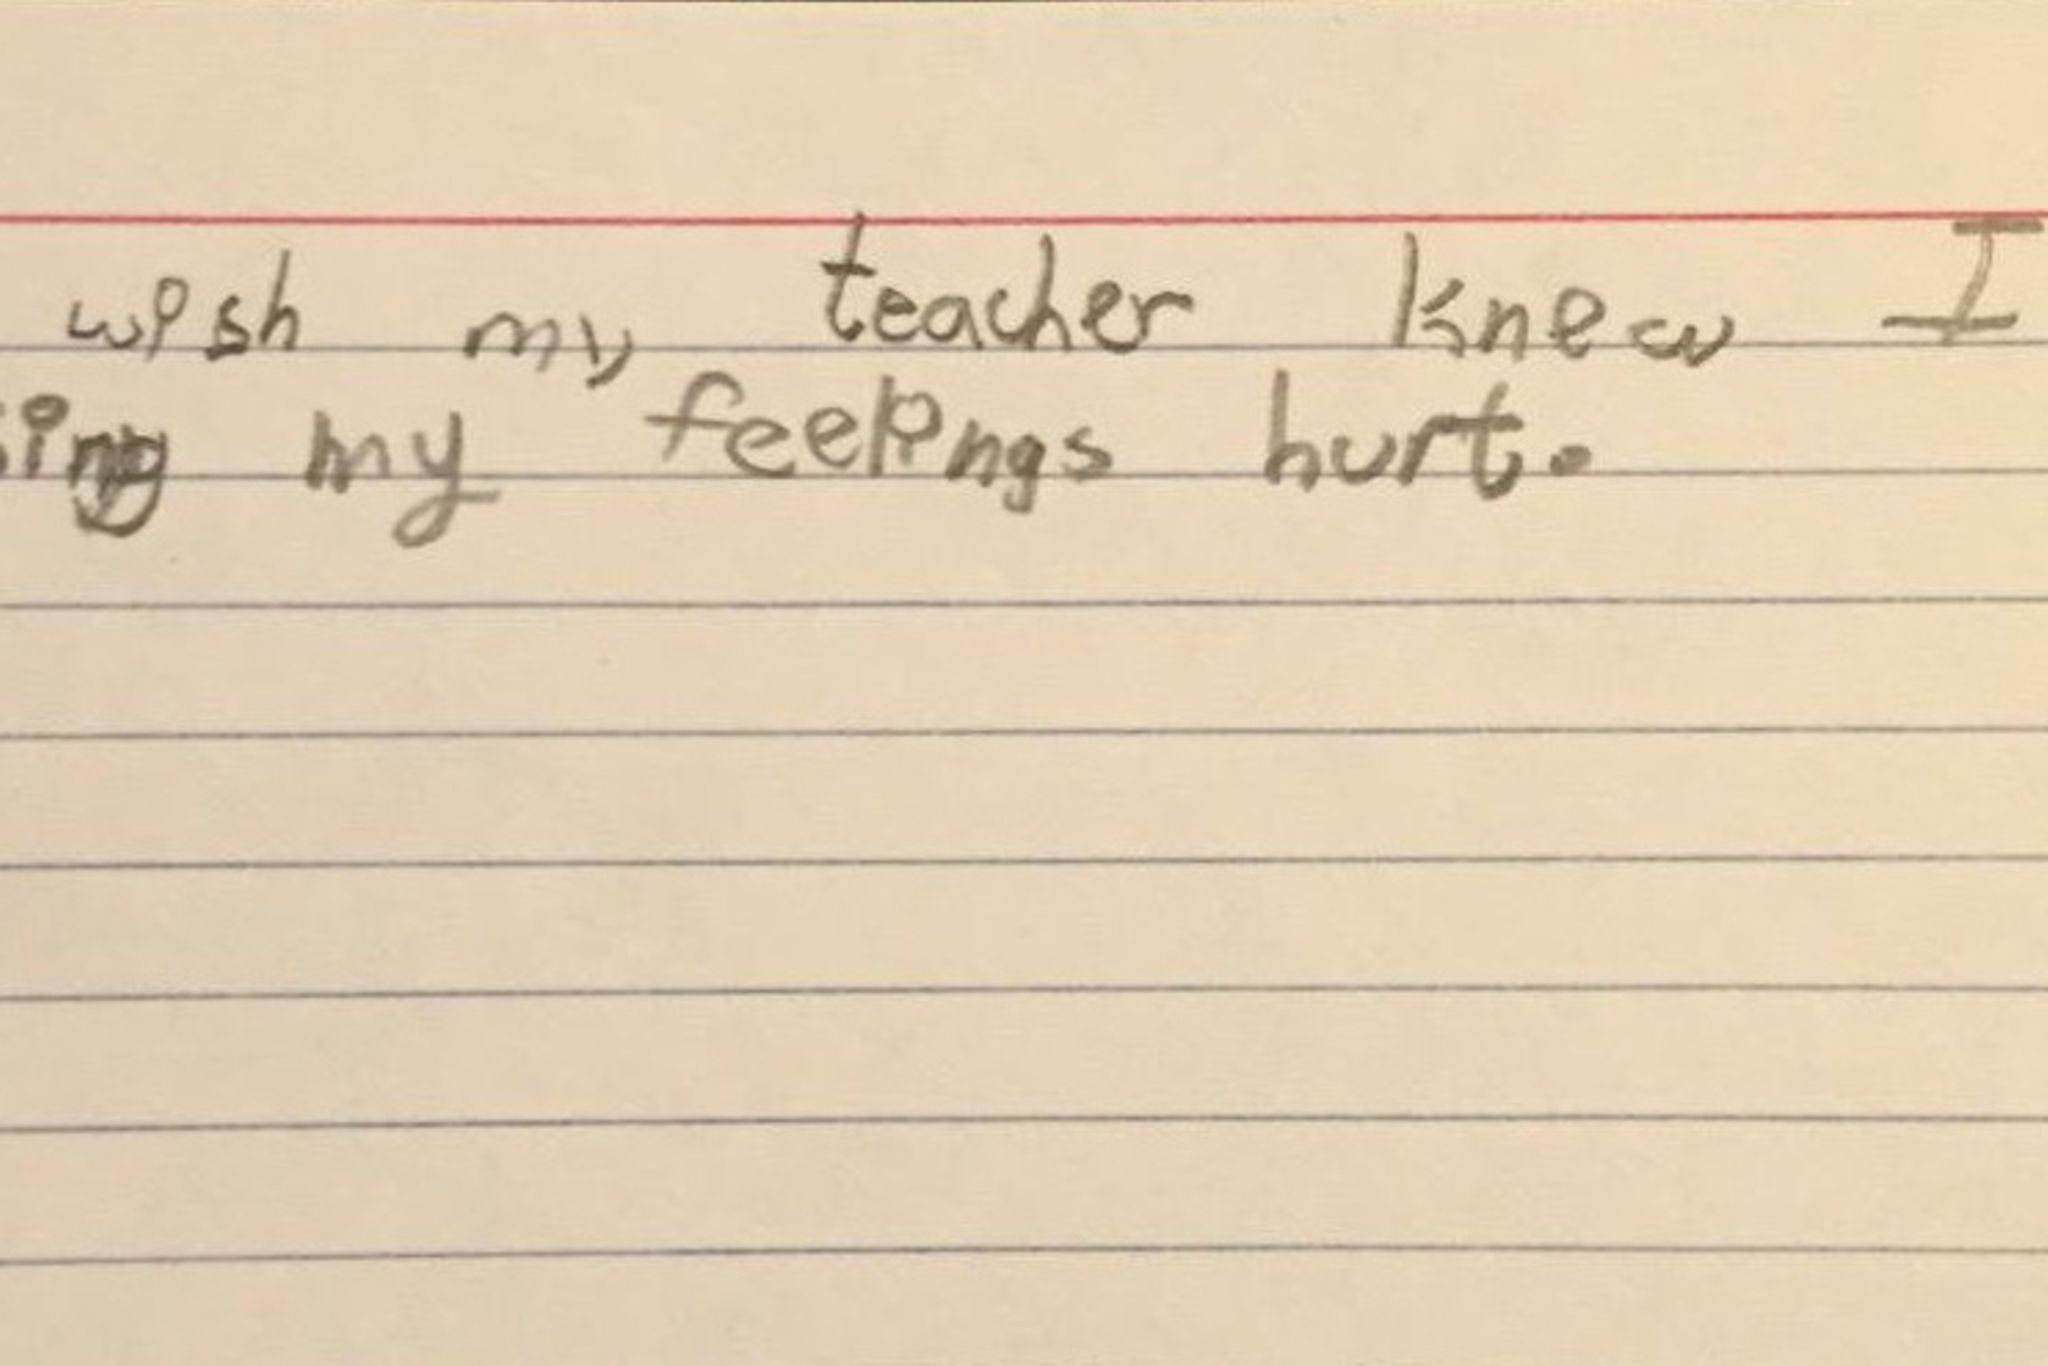 wish my teacher knew I
my feelings hurt.